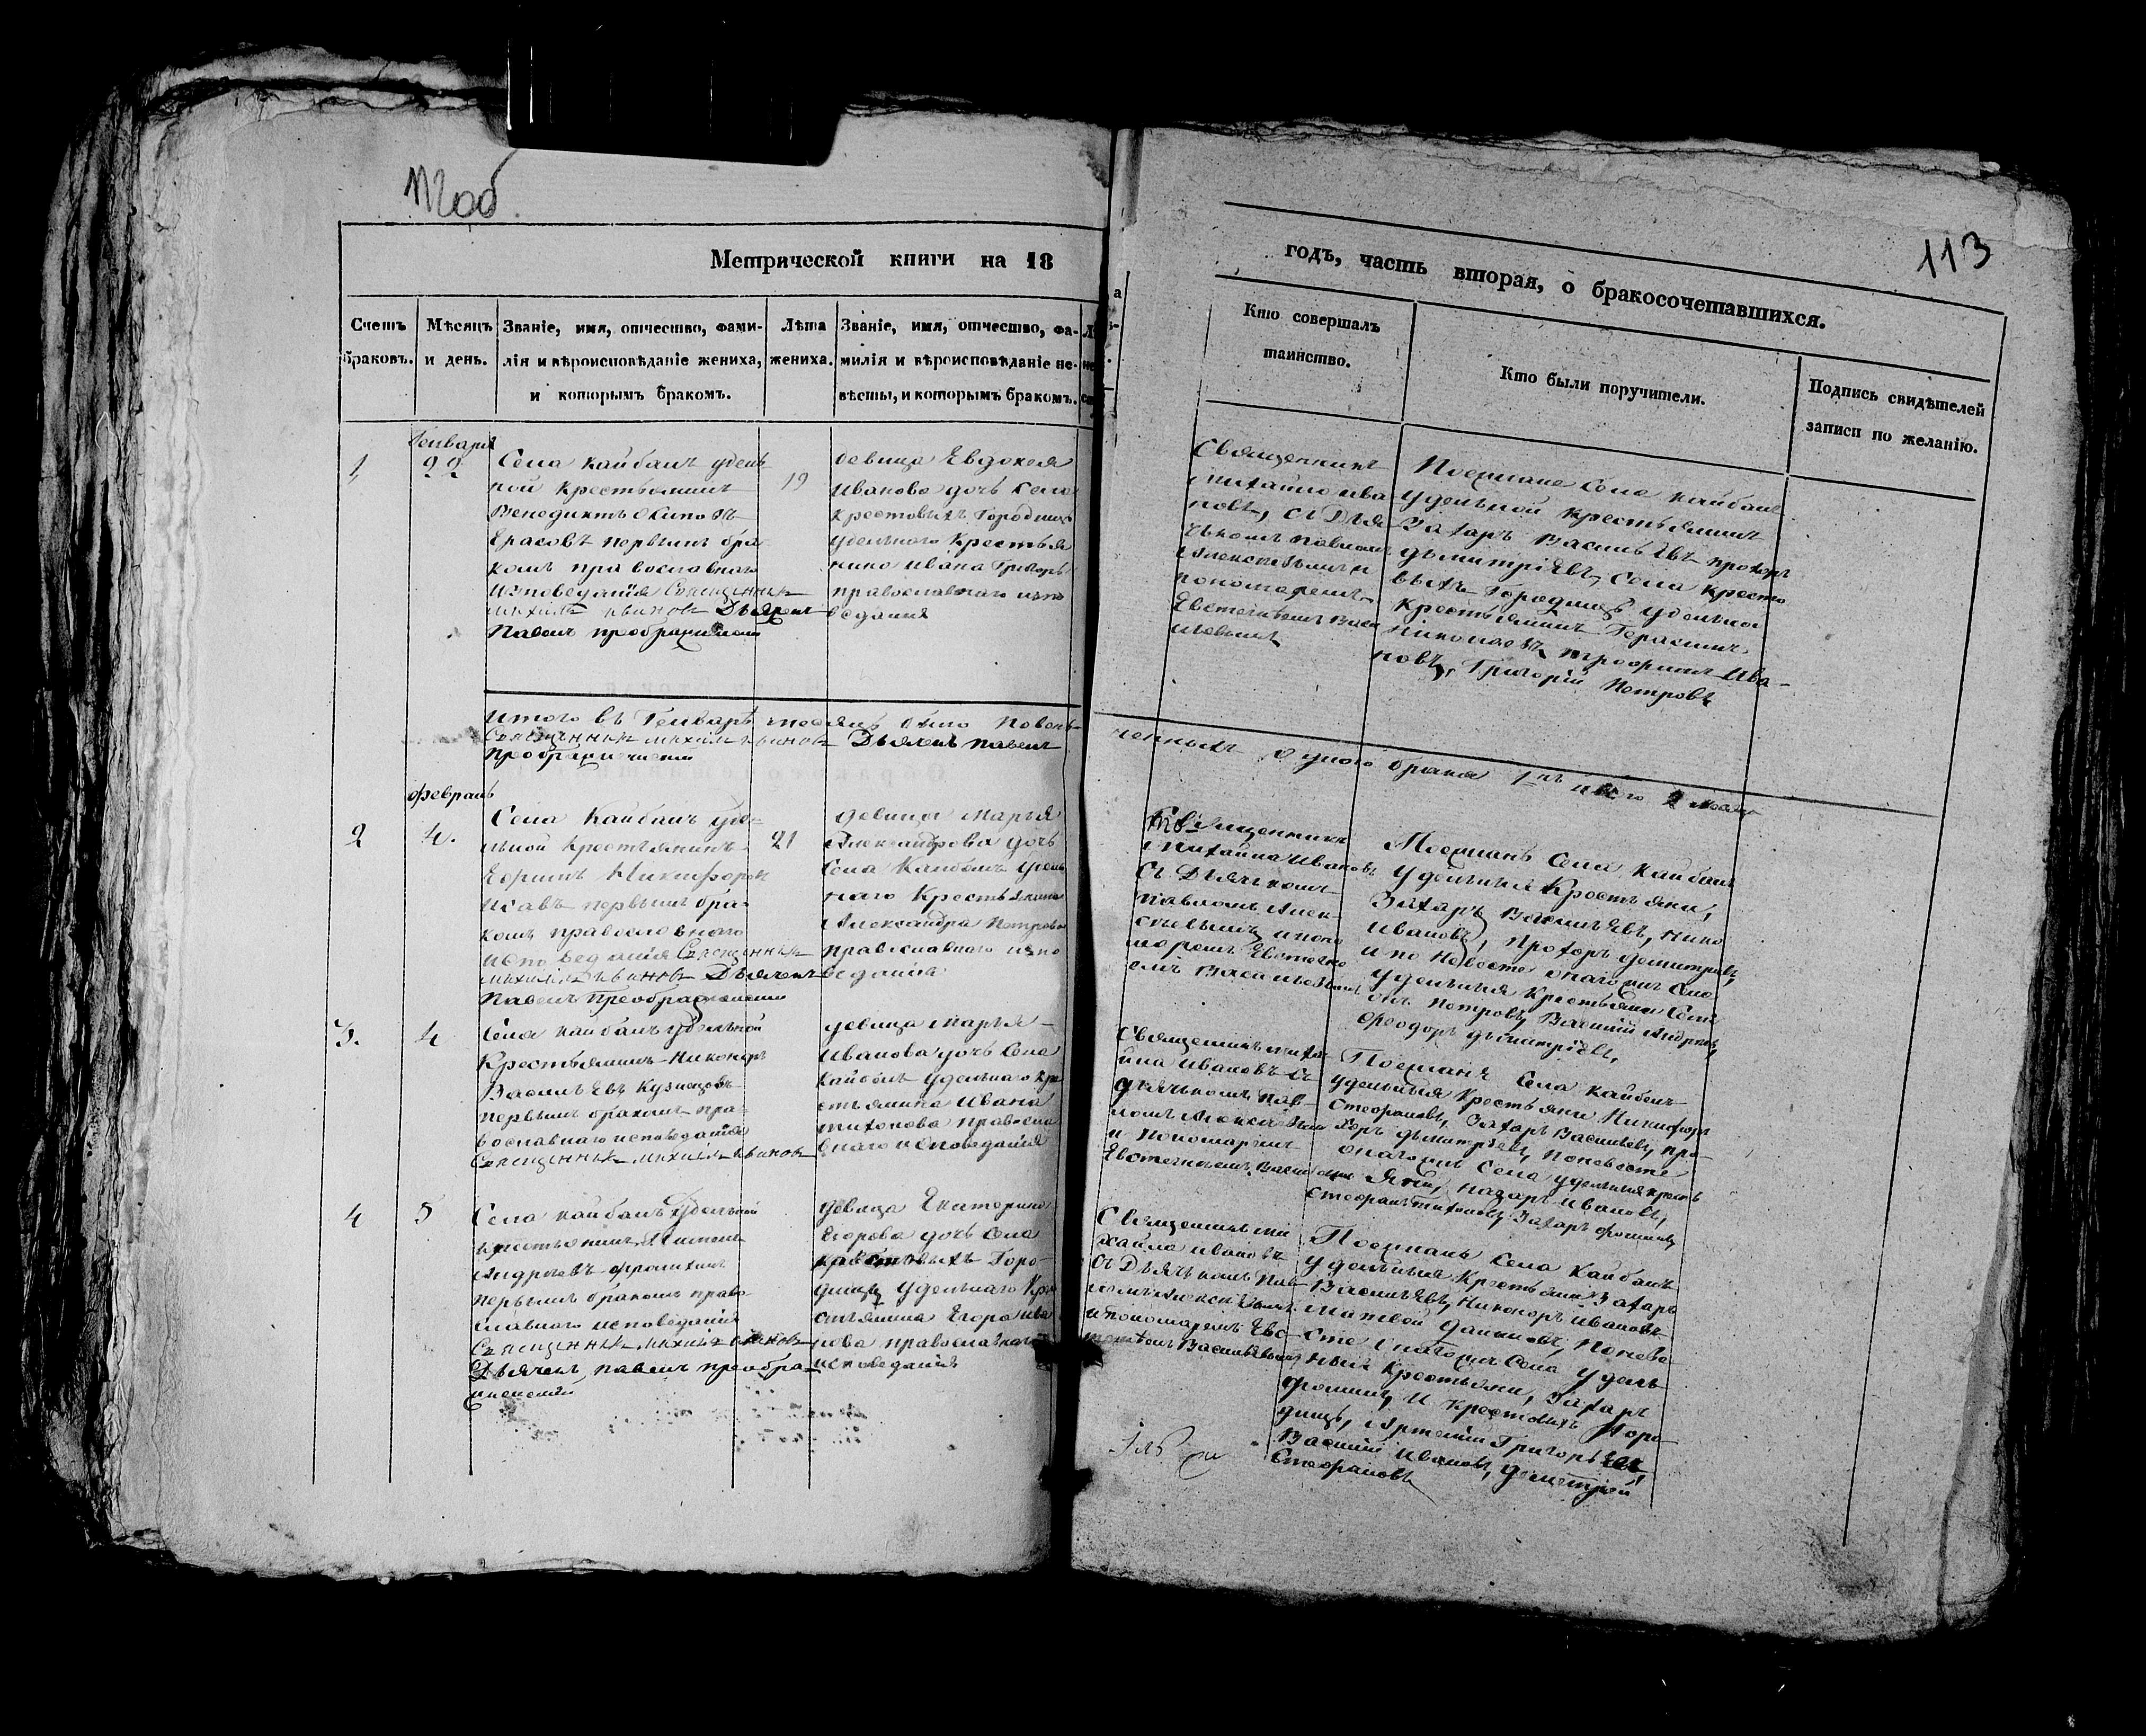 113
Метрической книги на 18
годъ, часть вторая, о бракосочетавшихся.
Счетъ браковъ.
Мѣсяцъ и день.
Званіе, имя, отчество, фами-
лія и вѣроисповѣданіе жениха,
и которымъ бракомъ.
Лѣта
жениха.
Званіе, имя, отчество, фа-
милія и вѣроисповѣданіе не-
вѣсты, и которымъ бракомъ.
Кто совершалъ
таинство.
Кто были поручители.
Подпись свидѣтелей
записи по желанію.
1
Генваря
22
Села Кайбалъ удѣль
ной крестьянинъ
Венедиктъ Осиповъ
Ерасовъ первымъ бра
комъ православнаго
исповедания Священникъ
Михаилъ Ивановъ Дьячекъ
Павелъ Преображенскій
19
девица Евдокея
Иванова дочь Села
Крестовыхъ Городищъ
удельнаго Крестья
нина Ивана Григорь
православнаго испо
ведания
Священникъ
Михайло Ива
новъ, съ Дья
чькомъ Павломъ
Алексѣевымъ и
пономаремъ
Евстегнѣемъ Васи
льевымъ
Поезжане Села Кайбалъ
удельной крестьянинъ
Захаръ Васильевъ Прохоръ
дьмитріевъ, Села Кресто
выхъ Городищъ удельна
Крестьянинъ Герасимъ
Николаевъ Трофимъ Ива-
новъ, Григорій Петровъ
Итого въ Генварѣ месяцѣ было повен-
ченныхъ одного брака
Священникъ Михаилъ Ивановъ Дьячекъ Павелъ
Преображенскій
Февраль
2
4.
Села Кайбалъ уде-
льной Крестьянинъ
Ефримъ Никифоровъ
Исавъ первымъ бра-
комъ православнаго
исповедания Священникъ
Михаилъ Ивановъ Дьячекъ
Павелъ Преображенскій
21
девица Марья
Александрова дочь
Села Кайбалъ удель
наго Крестьянина
Александра Петрова
православнаго испо
ведания
Священникъ
Михайла Ивановъ
Съ Дьячькомъ
Павломъ Алек-
сѣевымъ и поно
маремъ Евстегнѣ
емъ Васильевымъ
Поезжанѣ Села Кайбалъ
Удельныя Крестьяни,
Захаръ Васильевъ, Нико
Ивановъ, Прохоръ Димитріевъ,
и по невесте онагожъ Села
Удельныя Крестьяни Семи
онъ Петровъ, Василий Андреевъ,
Феодоръ дьмитріевъ,
3.
4
Села Кайбалъ удельной
Крестьянинъ Никоноръ
Васильевъ Кузнецовъ
первымъ бракомъ пра-
вославнаго исповедания
Священникъ Михаилъ Ивановъ
девица Марья
Иванова дочь Села
Кайбалъ удельнаго Кре
стьянина Ивана
Тихонова правосла
внаго исповедания
Священникъ Миха-
йла Ивановъ съ
дьячькомъ Пав-
ломъ Алексѣевымъ
и Пономаремъ
Евстегнѣемъ Васи
Поезжанѣ Села Кайбалъ
удельныя Крестьяни Никифоръ
Стефановъ, Захаръ Васильевъ, Про-
хоръ дьмитріевъ, по невесте
онагожъ Села удельныя кресть
яни, Назаръ Ивановъ,
Стефанъ Тихоновъ, Захаръ Фроловъ
4
5
Села Кайбалъ удельной
крестьянинъ
Андреевъ
первымъ бракомъ право
славнаго исповедания
Священникъ Михаилъ Ивановъ
Дьячекъ Павелъ Преобра-
женскій
девица Екатерина
Егорова дочь Села
Крестовыхъ Горо-
дищъ удельнаго Кре
стьянина Егора Ива
нова православнаго
исповедания
Священникъ Ми
хайло Ивановъ
Съ Дьячькомъ Пав-
ломъ Алексѣевымъ
и пономаремъ Евс-
Васильевымъ
Поезжанѣ Села Кайбалъ
удельныя Крестьяни Захаръ
Васильевъ, Никоноръ Ивановъ
Матвей Даниловъ, По неве-
сте онагожъ Села удель
ныя Крестьяни, Захаръ
и Крестовыхъ Горо-
дищъ, Артемий Григорьевъ,
Василий Ивановъ, Дмитрій
Стефановъ